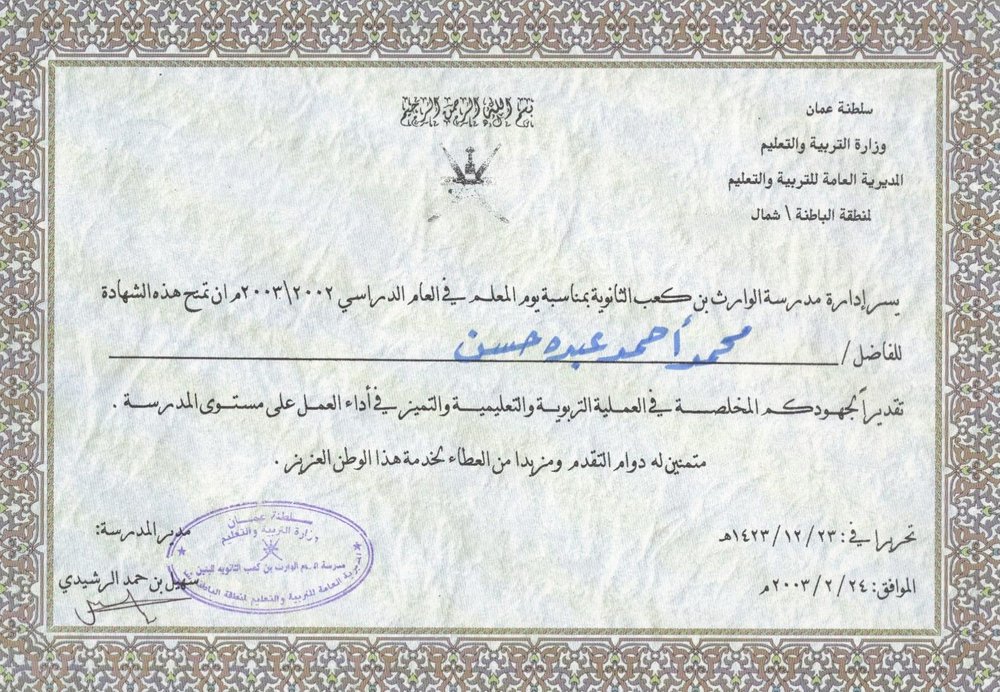 بسم الله الرحمن الرحيم
سلطنة عمان
وزارة التربية والتعليم
المديرية العامة للتربية والتعليم
لمنطقة الباطنة \ شمال
يسر إدارة مدرسة الوارث بن كعب الثانوية بمناسبة يوم المعلم في العام الدراسي ٢٠٠٢\٢٠٠٣م ان تمنح هذه الشهادة
للفاضل / محمد أحمد عبده حسن
تقديراً لجهودكم المخلصة في العملية التربوية والتعليمية والتميز في أداء العمل على مستوى المدرسة .
متمنين له دوام التقدم ومزيدا من العطاء لخدمة هذا الوطن العزيز .
تحريرا في : ٢٣ / ١٢ / ١٤٢٣هـ
الموافق : ٢٤ / ٢ / ٢٠٠٣م
مدير المدرسة:
سهيل بن حمد الرشيدي
سلطنة عمان
وزارة التربية والتعليم
مدرسة الإمام الوارث بن كعب الثانويه للبنين
المديرية العامة للتربية والتعليم لمنطقة الباطنة